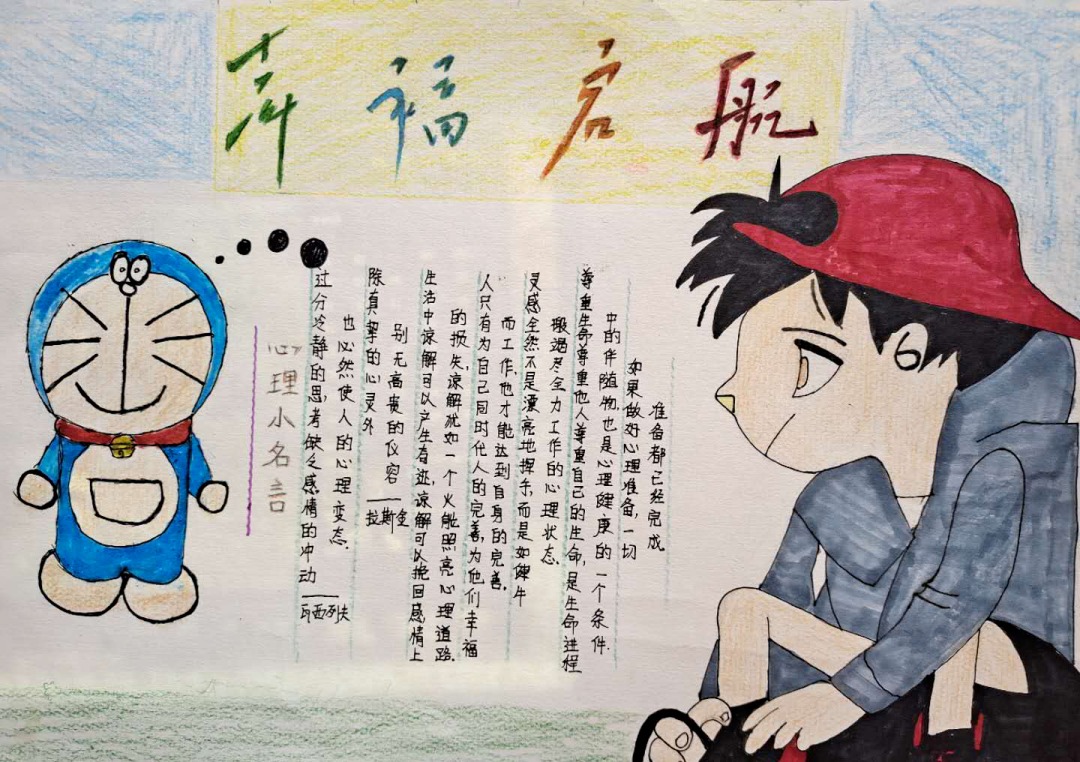 幸福启航
心理小名言
过分冷静的思考缺乏感情的冲动
也必然使人的心理变态.
——瓦西列夫
除真挚的心灵外
别无高贵的仪容
——拉斯金
生活中谅解可以产生奇迹,谅解可以挽回感情上
的损失,谅解犹如一个火能照亮心理道路.
人只有为自己同时代人的完善,为他们幸福
而工作,他才能达到自身的完善.
灵感全然不是漂亮地挥手,而是如健牛
般竭尽全力工作的心理状态.
尊重生命尊重他人尊重自己的生命,是生命进程
中的伴随物,也是心理健康的一个条件.
如果做好心理准备,一切
准备都已经完成.